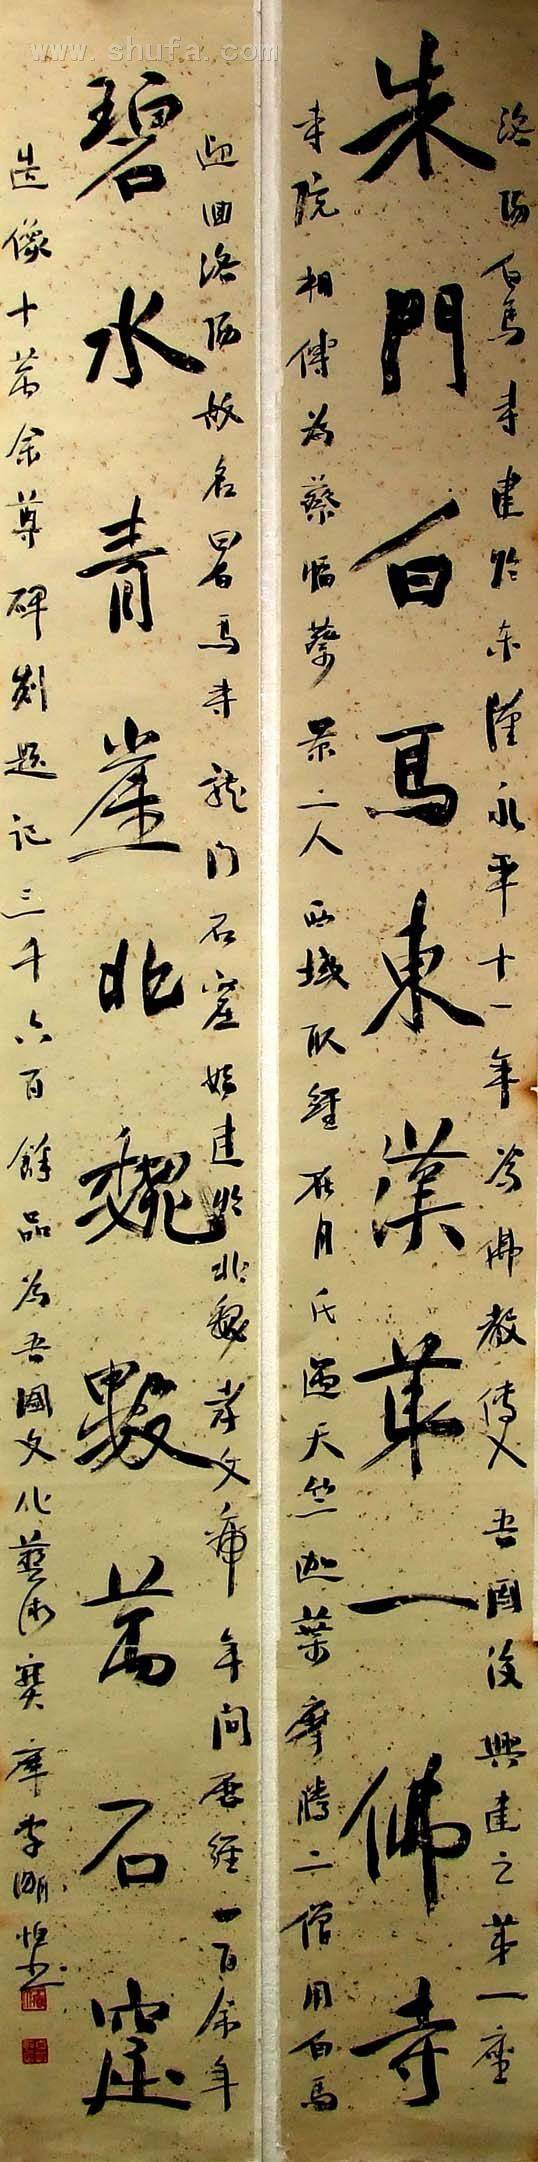 www.shufa.com
洛陽白馬寺建於东漢永平十一年为佛教傳入吾国後興建之第一座
朱門白馬東漢第一佛寺
寺院相傳为蔡愔蔡景二人西域取經在月氏遇天竺迦葉摩騰二僧用白馬
迎回洛陽故名曰白馬寺龍门石窟始建於北魏孝文帝年间历經一百余年
碧水青崖北魏數萬石窟
造像十萬余尊碑刻題记三千六百餘品为吾國文化藝術寶庫李